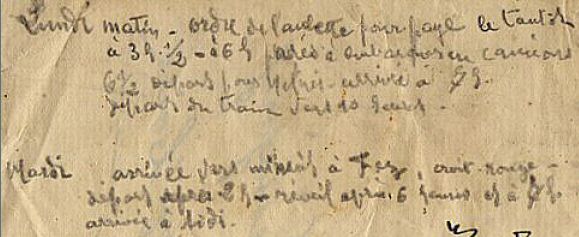 Lundi matin - ordre de la musette pour paye le tantôt
à 3h 1/2 - à 6h parés à embarquer en camions
6 1/2 départ pour Meknès - arrivée à 7h.
départ du train vers 10 heures.
Mardi arrivée vers minuit à Fez, croix-rouge -
départ après 2h - réveil après 6 heures et à 7h
arrivée à Sidi.